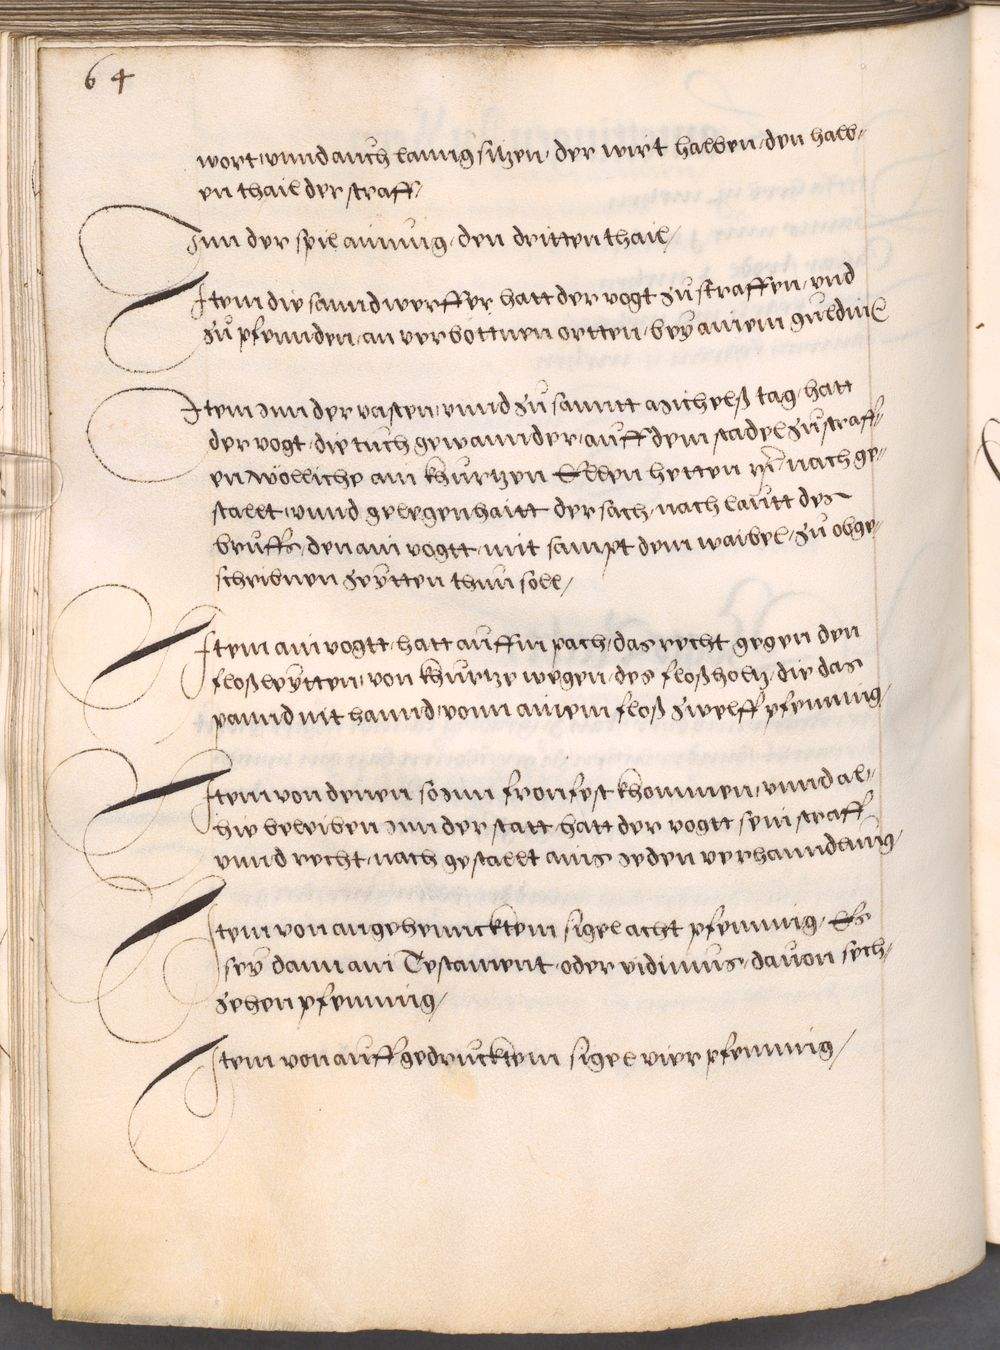 64
wort, vnnd auch lanng sitzen, der wirt halben, den halb-
en thail der straff,
Inn der spil ainung, den dritten thail,
Item die sanndwerffer hatt der vogt zu straffen, vnd
zu pfennden, an verbottnen ortten, bey ainem guldin
Item Inn der vasten, vnnd zu sannt Michelß tag, hatt
der vogt, die tuch gewannder, auff dem stadel zu straff-
en, wölliche ain khurtzen Ellen hetten nach ge-
stallt, vnnd gelegenhaitt der sach, nach lautt des
bruffs, den ain vogtt, mit sampt dem waibel, zu obge-
schribnen zeytten thun soll,
Item ain vogtt, hatt auff in pach, das recht gegen den
floßleytten, von khurtze wegen, des floßholtz, die das
pannd nit hannd, vonn ainem floß zwelff pfenning,
Item von denen so Inn fronfest khommen, vnnd al-
hie beleiben Inn der statt, hatt der vogtt sein straff
vnnd recht, nach gestallt ains Jeden verhanndlung,
Item von angehennckttem sigel acht pfenning, Es
sey dann ain Testament, oder vidimus, dauon sech-
zehen pfenning,
Item von auffgedrucktem sigel vier pfenning,